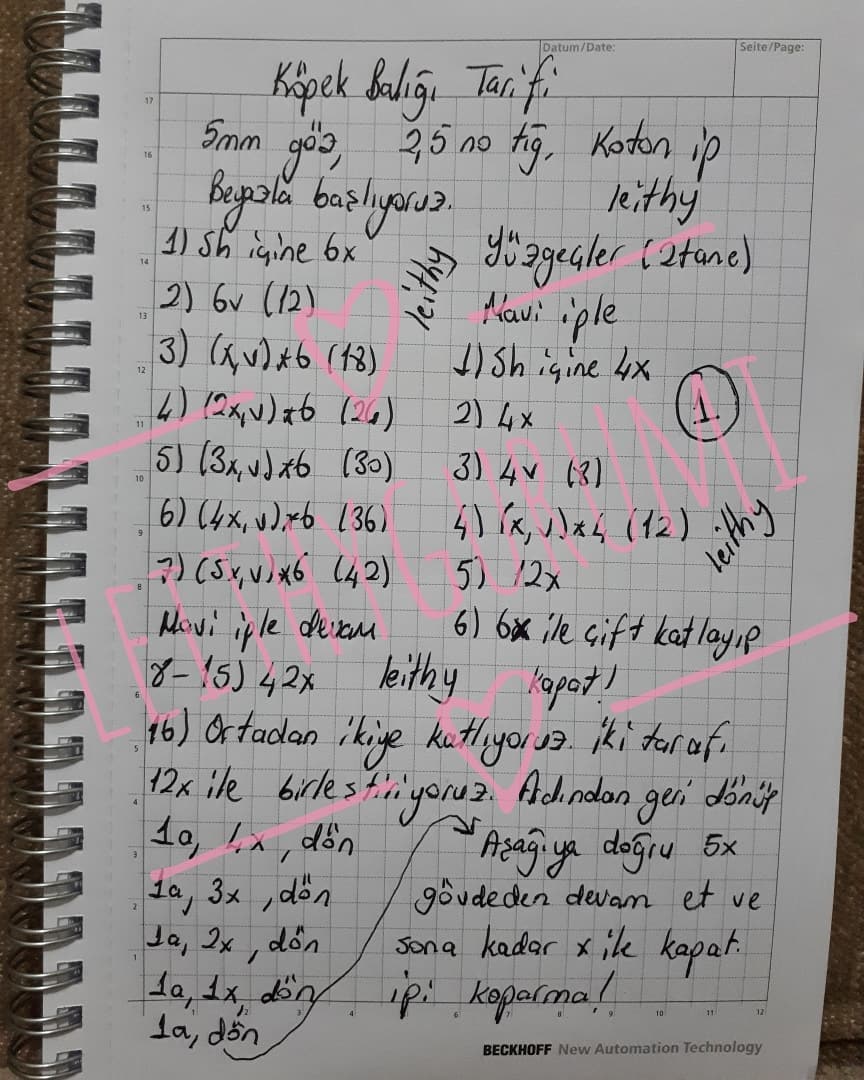 Datum/Date:
Seite/Page:
Köpek Balığı Tarifi
5mm göz, 2,5 no tığ, Koton ip
Beyazla başlıyoruz. leithy
1) Sh içine 6x
2) 6v (12)
3) (x,v)*6 (18)
4) (2x,v)*6 (24)
5) (3x,v)*6 (30)
6) (4x,v)*6 (36)
7) (5x,v)*6 (42)
Mavi iple devam
8-15) 42x leithy
leithy
Yüzgeçler (2tane)
Mavi iple
1) Sh içine 4x
1
2) 4x
3) 4v (8)
4) (x,v)*4 (12) leithy
5) 12x
6) 6x ile çift katlayıp
kapat!
16) Ortadan ikiye katlıyoruz. iki tarafı
12x ile birleştiriyoruz. Adından geri dönüp
1a, 4x, dön
1a, 3x, dön
1a, 2x, dön
1a, 1x, dön
1a, dön
Aşağıya doğru 5x
gövdeden devam et ve
sona kadar x ile kapat.
ipi koparma!
LEITHYGURUMI
17
16
15
14
13
12
11
10
9
8
6
5
4
3
2
1
1 2 3 4 6 7 8 9 10 11 12
BECKHOFF New Automation Technology